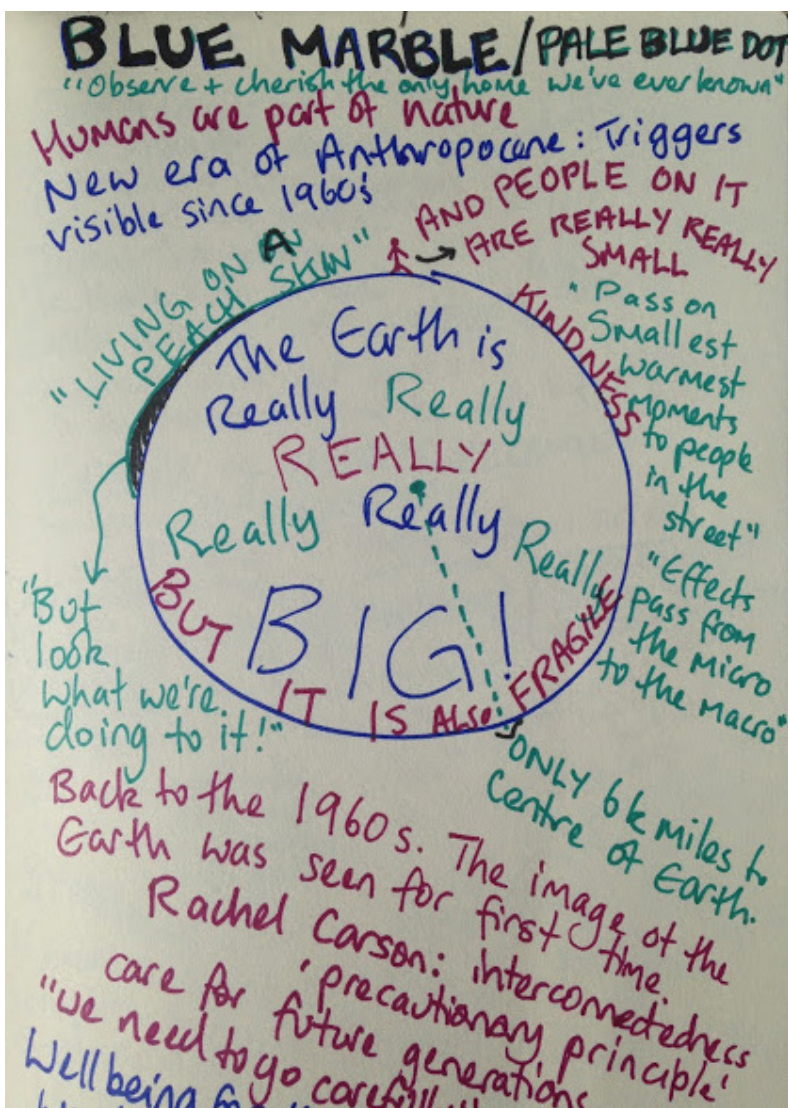 BLUE MARBLE/PALE BLUE DOT
"Observe + cherish the only home we've ever known"
Humans are part of nature
New era of Anthropocane: Triggers
visible since 1960s
AND PEOPLE ON IT
ARE REALLY REALLY
SMALL
"LIVING ON A
PEACH SKIN"
The Earth is
Really Really
REALLY
Really Really
Really
BIG!
BUT IT IS ALSO FRAGILE
KINDNESS
"Pass on
smallest
warmest
moments
to people
in the
street"
"Effects
pass from
the micro
to the macro"
"But
look
what we're
doing to it!"
ONLY 6k miles to
centre of Earth.
Back to the 1960s. The image of the
Earth was seen for first time.
Rachel Carson: interconnectedness
'precautionary principle'
care for future generations
"we need to go carefully
Wellbeing